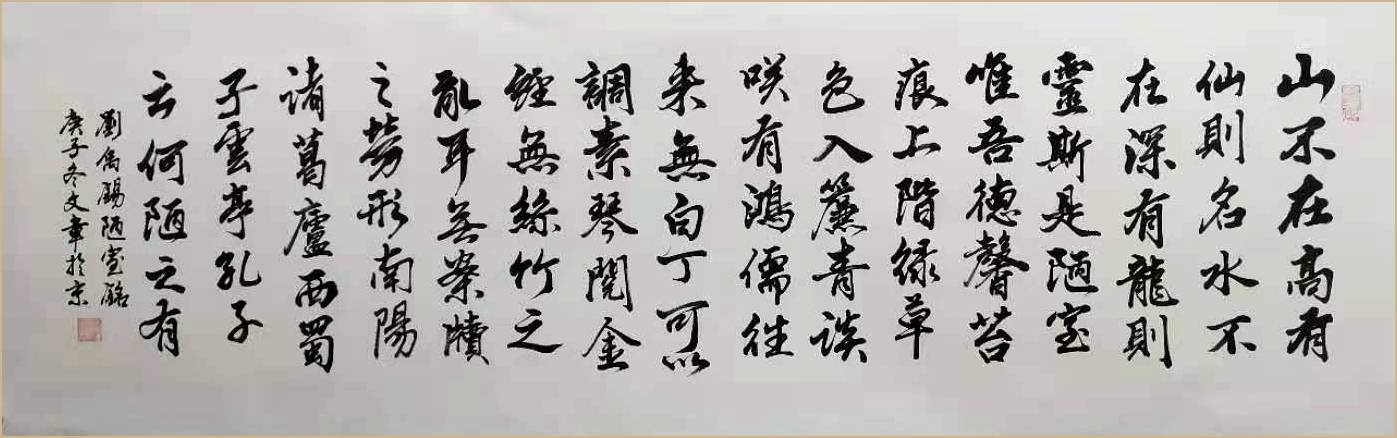 山不在高有
仙則名水不
在深有龍則
靈斯是陋室
唯吾德馨苔
痕上階緑草
色入簾青談
咲有鴻儒往
来無白丁可以
調素琴閱金
經無絲竹之
亂耳無案牘
之勞形南陽
諸葛廬西蜀
子雲亭孔子
云何陋之有
劉禹錫陋室銘
庚子冬文章於京